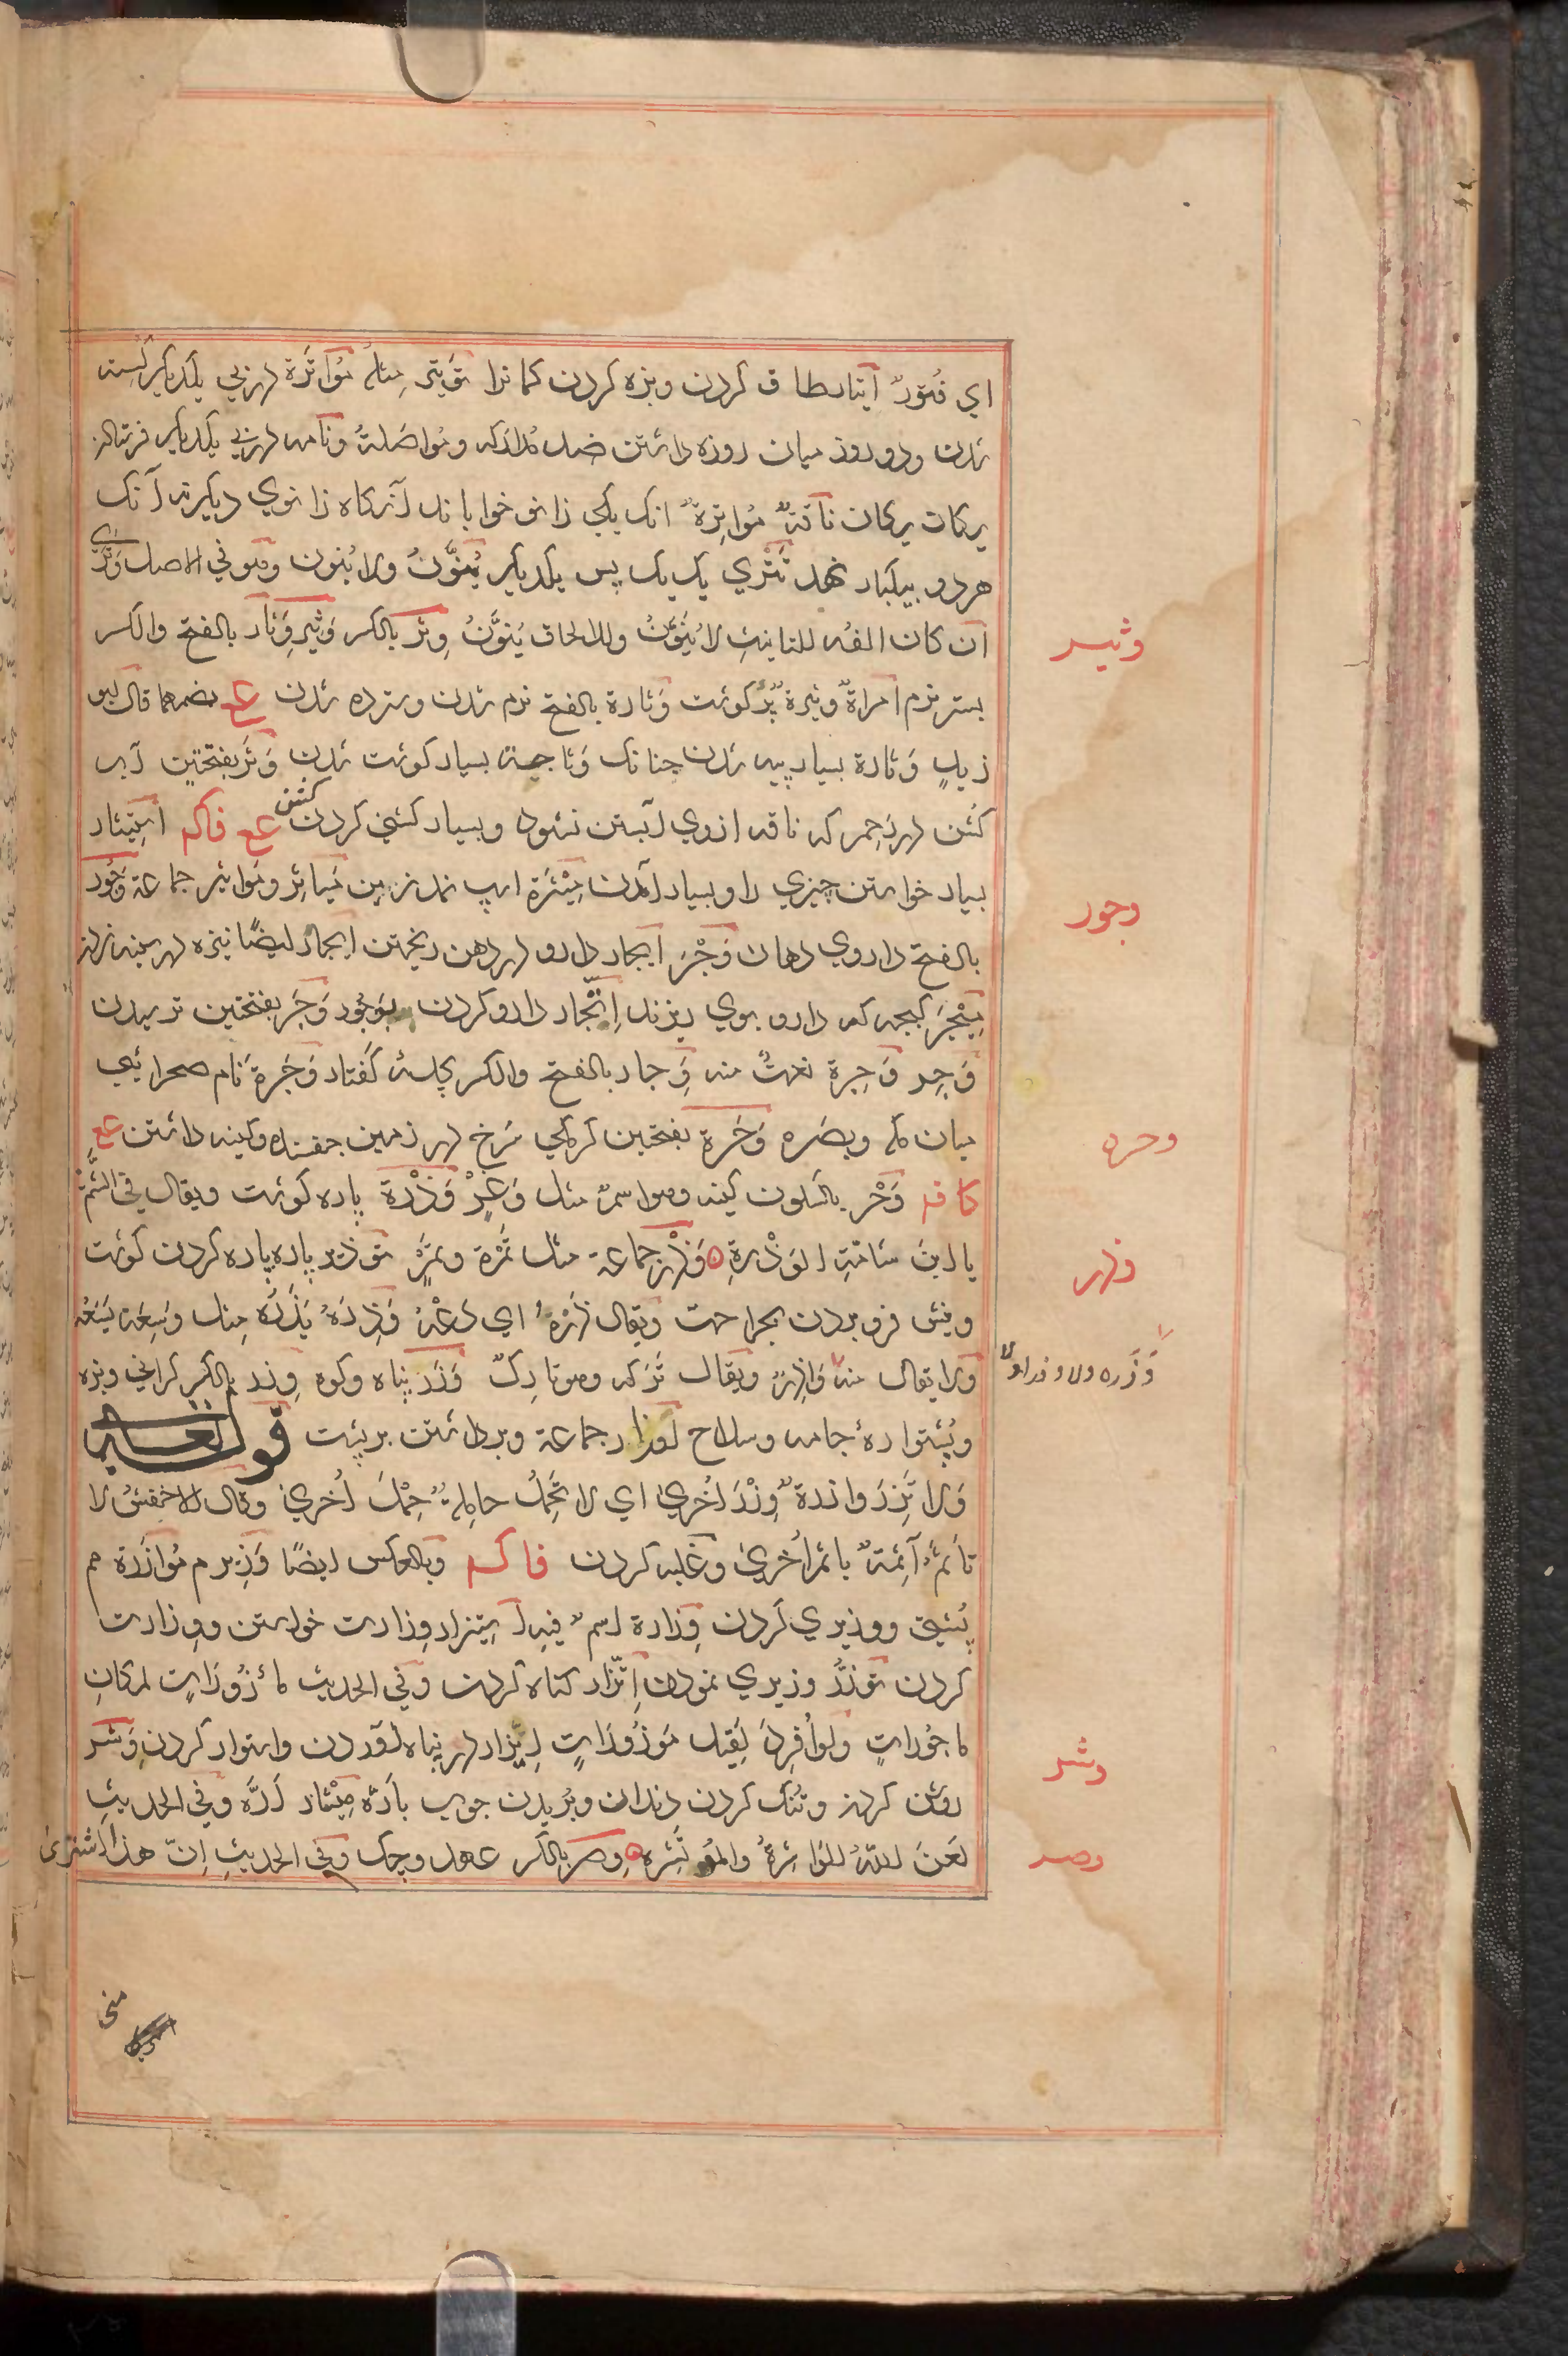 اي فُتورٌ ايتار طاق كردن و بزه كردن كمانرا تَوتير مثله مُوَاتَرَة در پي يكديكر
شدن و دو روز ميان روزه داشتن ضد مُداركه و مُواصَلة و نامه در پي يكديكر فرستادن
يركان يركان ناقةٌ مُواتِرةٌ انك يكي زانو خواباند آنركاه زانوي ديكرنه آنك
هر دو بيكبار نهد تَتْري يك يك پس يكديكر يُنوَّنُ ولا يُنون وهو في الاصل وَتْرَي
ان كان الفُه للتانيثِ لا يُنَوَّنُ وللالحاق يُنَوَّنُ وِثر بالكسر وَثير وَثار بالفتح والكسر
وثيـر
بستر نرم امراةٌ وثيرةٌ پُر كوشت وَثارة بالفتح نرم شدن و سترده شدن عج بضمها قال ابو
زيدٍ وَثارة بسيار پيه شدن چنانك وَثاجة بسيار كوشت شدن وَثَر بفتحتين آب
كُشن در رحم كه ناقه ازوي آبستن نشود و بسيار كشني كردن كشن عج فاكه استيثار
بسيار خواستن چيزي را و بسيار آمدن مِيْثَرَة اسپ نمد زين مَياثِر و مَواثِر جماعة وَجُور
وجور
بالفتح داروي دهان وَجْر ايجار دارو در دهن ريختن ايجار ايضًا نيزه در سينه زدن
مِيْجَر كپچه كه دارو بوي ريزند اِتّجار دارو كردن بوَجُور وَجَر بفتحتين ترسيدن
وَجِر وَجِرة نعتٌ منه وِجار بالفتح والكسر چاسه كفتار وَجَرَة نام صحرائي
ميان مكه و بصره وَحَرة بفتحين كرمكي سرخ در زمين جفسنده و كينه داشتن عج
وحره
كا فه وَحْر بالسكون كينه وهو اسمٌ مثل وَغْرٍ وَذْرة پاره كوشت ويقال في الشتمِ
يا ابنَ شامّةِ الوَذْرةِ وَذْر جماعة مثل تَمْرة وتمْر تَوذير پاره پاره كردن كوشت
وذر
و نيش فرو بردن بجراحت ويقال ذَرْهُ اي دَعْهُ وَذِرَهُ يَذَرُه مِثل وَسِعَه يَسَعُه
ولا يقال منه وَاذِرٌ ويقال تَرَكه وهو تارِكٌ وَزَر پناه و كوه وِزر بالكسر كراني و بزه
وَذَره ولا وذرا ولا
و پُشتوارهٔ جامه و سلاح اَوزار جماعة و برداشتن بر پشت قوله تعالي
وَلا تَزِرُ وازرةٌ وِزْرَ اُخريٰ اي لا تَحْمِلُ حامِلةٌ حِمْلَ اُخري وقال الاخفشُ لا
تأثمُ آثِمةٌ باثمِ اُخري و غلبه كردن فاكه وبالعكس ايضًا وَزير م مُوازَرة هم
پُشتي و وزيري كردن وِزارة اسمٌ فيه استيزار وِزارت خواستن و وِزارت
كردن تَوَزُّر وزيري نمودن اِتّزار كناه كردن وفي الحديث مأزُوراتٍ لمكانِ
ماجُوراتٍ ولو اُفرِدَ لَقيل مَوزُوراتٍ ايزار در پناه آوردن و استوار كردن وَشر
وشر
روشن كردن و تُنك كردن دندان و بُريدن چوب باَرّه مِيْشار اَرّه وفي الحديثِ
لعَنَ اللهُ الواشِرةَ والمُوتَشِرة وِصر بالكسر عهد و چك وفي الحديثِ اِنّ هذا اشتري
وصر
مني